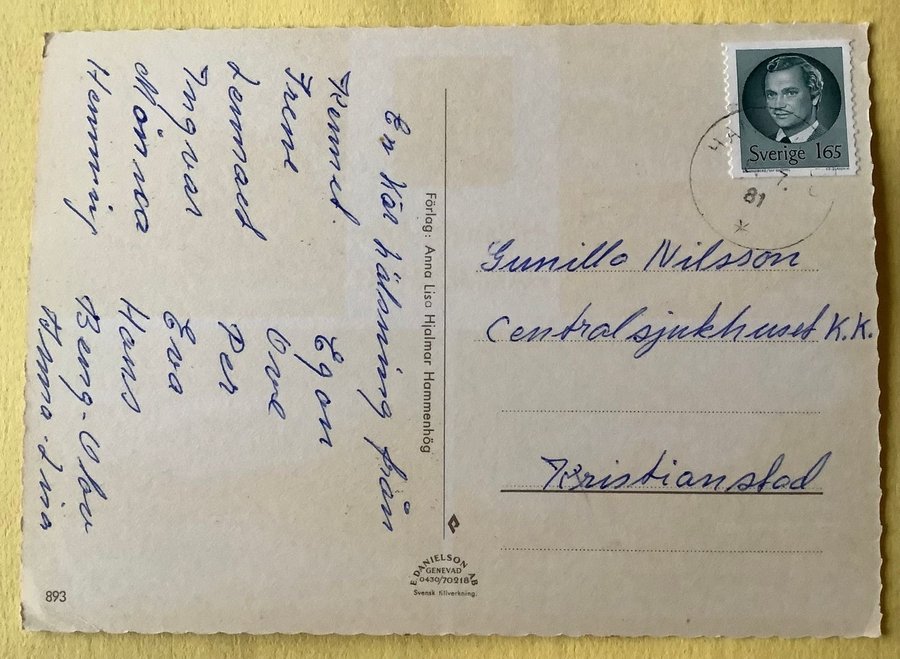 En kär hälsning från
Kennet. Egon
Irene Ove
Lennart Per
Ingvar Eva
Monica Hans
Henning Beng-Olov
Anna-Lisa
Förlag: Anna Lisa Hjalmar Hammenhög
Sverige 165
81
Gunilla Nilsson
Centralsjukhuset K.K.
Kristianstad
E. DANIELSON AB
GENEVAD
0430/70218
Svensk tillverkning.
893